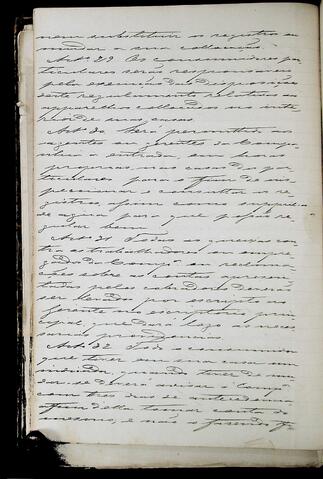 nem substituir os registros ou
mudar a sua collocação.
Art.º 29 Os consumidores par
ticulares serão responsaveis
pela execução das disposições
deste regulamento relativas ao
apparelhos collocados no inte
rior de suas casas.
Art.º 30 Será permittido aos
agentes ou gerentes da Compa
nhia a entrada, em horas
proprias, nas casas dos par
ticulares para o fim de ins
peccionar, e consultar os re
gistros, assim como supprila
de agua para que possa re
gular bem.
Art.º 31 Todas as queixas con
tra os trabalhadores ou empre
gados da Comp.ª ou reclama
ções sobre as contas apresen
tadas pelos cobradores deverão
ser levadas por escripto ao
gerente no escriptorio prin
cipal, que dará logo as neces
sarias providencias.
Art.º 32 Todo o consumidor
que tiver em sua casa um
medidor, quando tiver de mu
dar-se deverá avisar á Comp.ª
com tres dias de antecedencia
afim della tomar conta do
mesmo, e não o fazendo fi